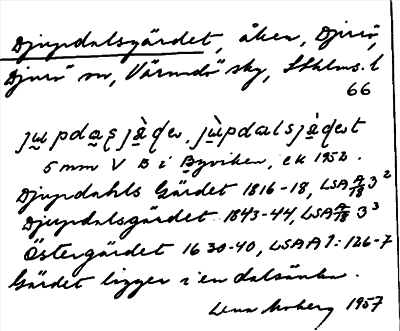 Djupdalsgärdet, åker, Djurö,
Djurö sn, Värmdö sky, Sthlms. l
66
5 mm V B i Byviken, ek 1952.
Djupdahls Gärdet 1816-18, LSA A/18 3²
Djupdalsgärdet 1843-44, LSA A/18 3³
Östergärdet 1630-40, LSA A 1:126-7
Gärdet ligger i en dalsänka.
Lena Moberg 1957